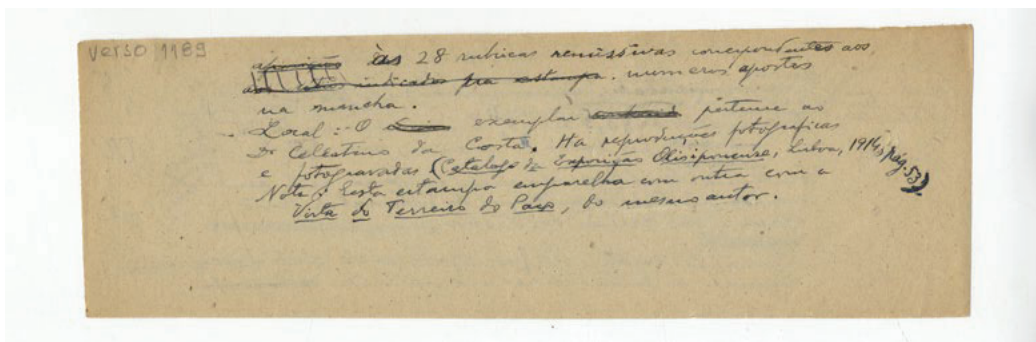 verso 1189
às 28 rubricas remissivas correspondentes aos
indicados pra estampa. numeros apostos
na mancha.
Local: O exemplar pertence ao
Dr Celestino da Costa. Ha reproduções fotograficas
e fotogravadas (Catalogo da Exposição Olisiponense, Lisboa, 1914, pág. 53)
Nota: Esta estampa emparelha com outra com a
Vista do Terreiro do Paço, do mesmo autor.